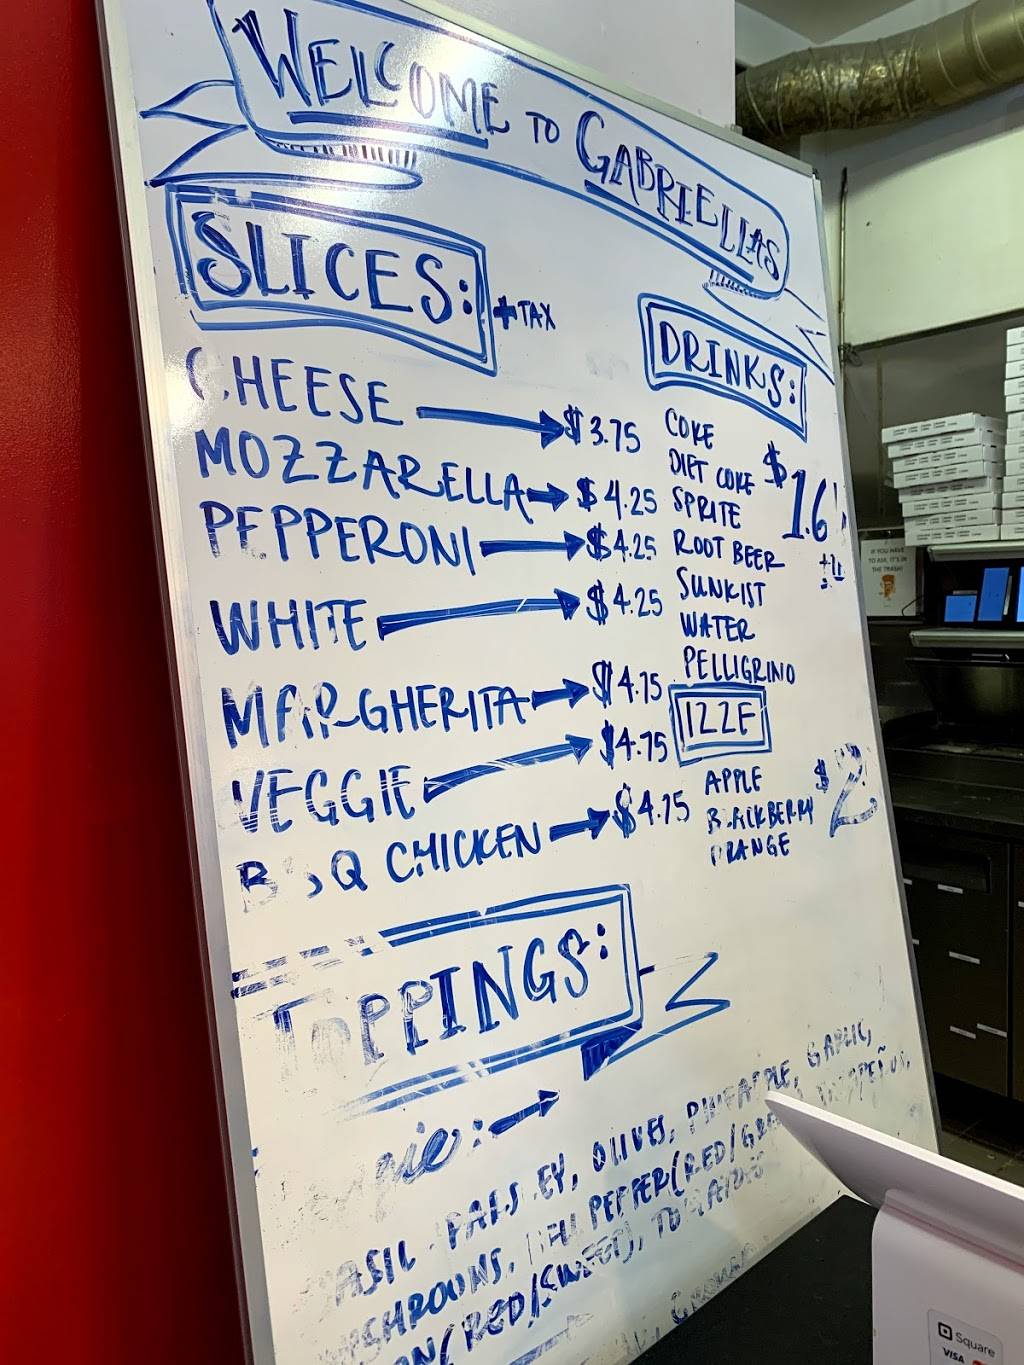 WELCOME TO GABRIELLAS
SLICES: +TAX
CHEESE $3.75
MOZZARELLA $4.25
PEPPERONI $4.25
WHITE $4.25
MARGHERITA $4.75
VEGGIE $4.75
BBQ CHICKEN $4.75
DRINKS:
COKE
DIET COKE
SPRITE
ROOT BEER
SUNKIST
WATER
PELLIGRINO
IZZE
APPLE
BLACKBERRY $2
ORANGE
TOPPINGS:
BASIL, PARSLEY, OLIVES, PINEAPPLE, GARLIC,
BELL PEPPER(RED/
(RED/SWEET),
IF YOU HAVE
TO ASK, IT'S IN
THE TRASH!
Square
VISA